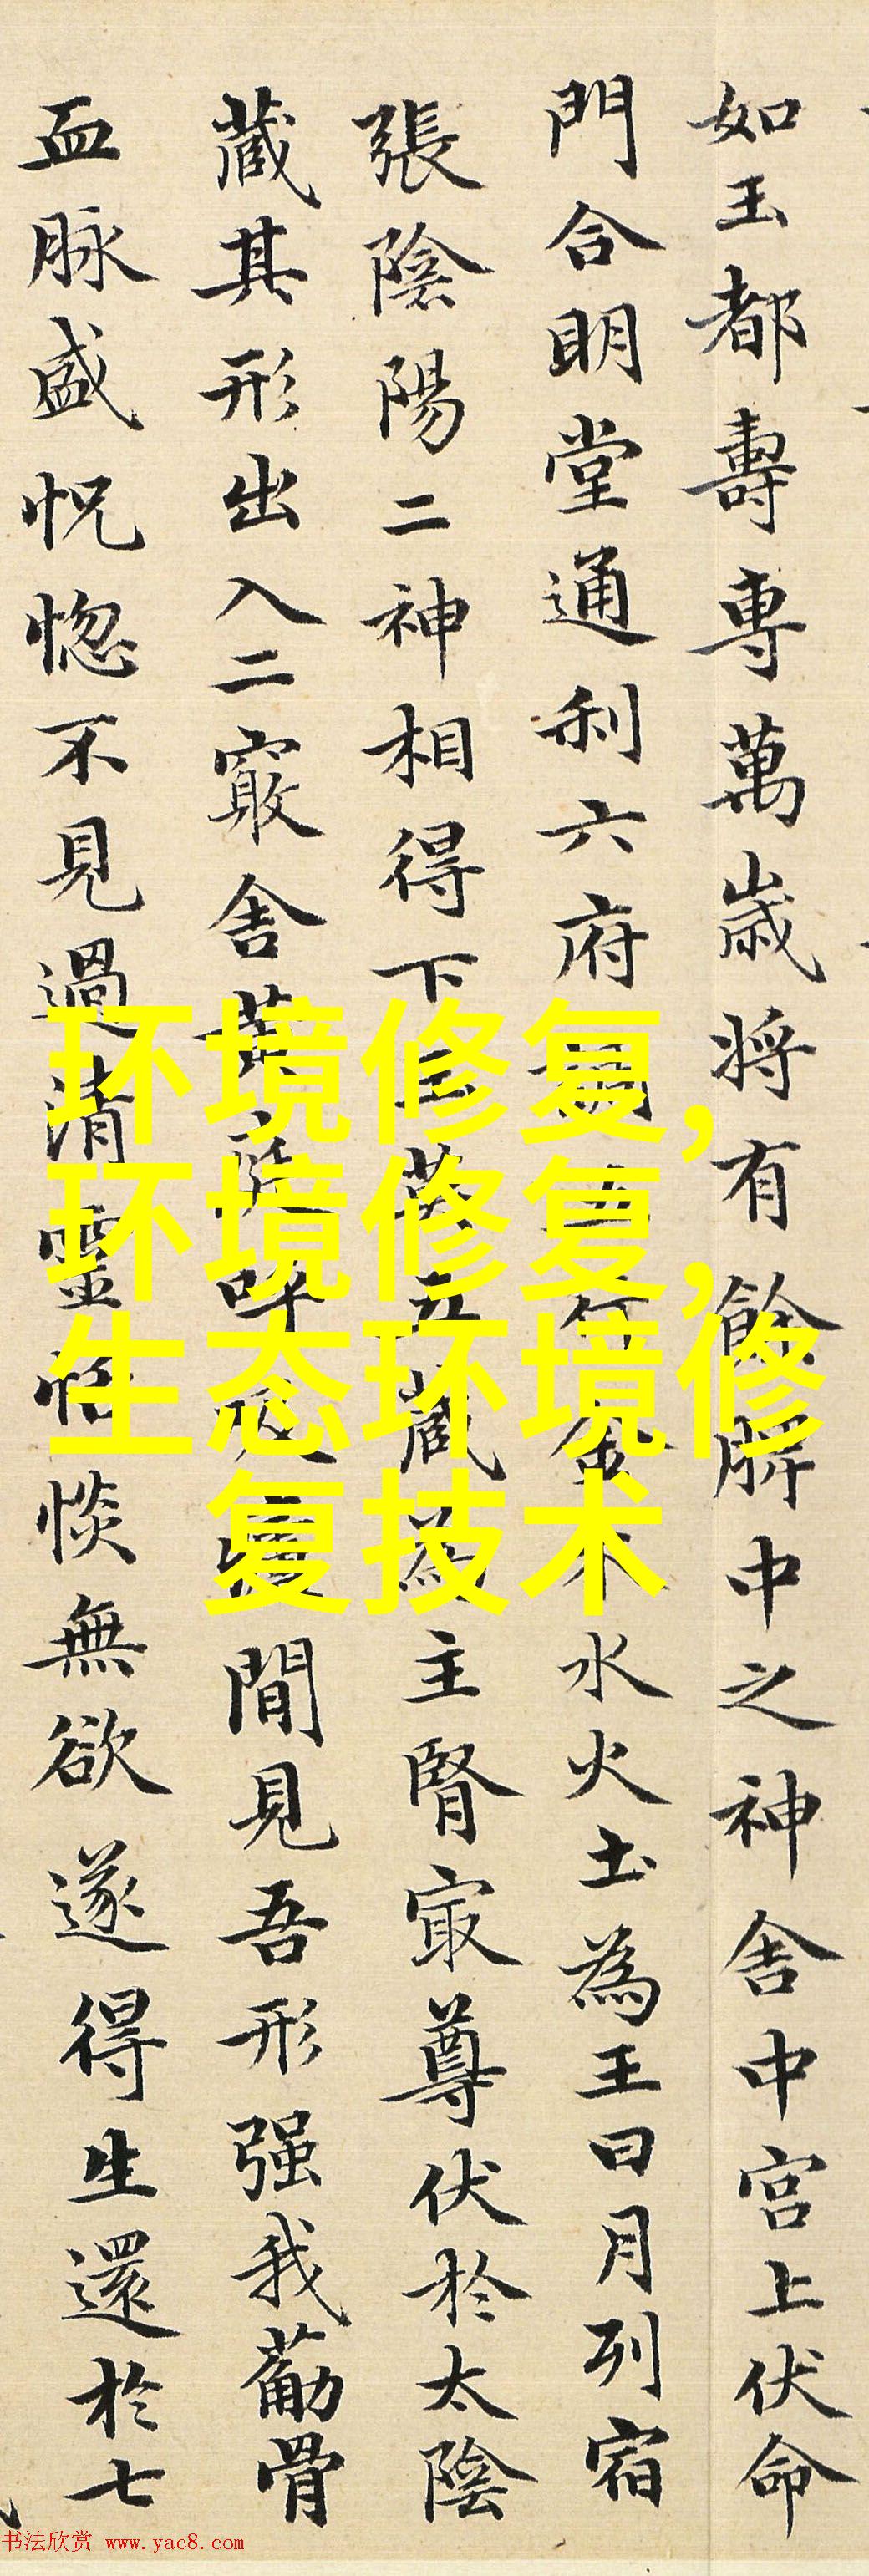 如玉都壽專萬歲將有餘脾中之神舍中宮上伏命
門合明堂通利六府調五行金木水火土為王日月列宿
張陰陽二神相得下玉英五藏為主腎冣尊伏於太陰
藏其形出入二竅舍黃庭呼吸虛間見吾形强我葋骨
血脉盛怳惚不見過清靈恬惔無欲遂得生還於七
环境修复,
环境修复,
生态环境修
复技术
书法欣赏 www.yac8.com